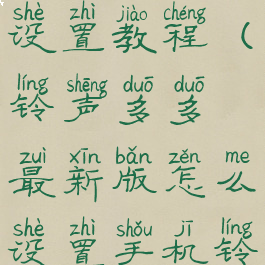 shè zhì jiào chéng
设置教程（
líng shēng duō duō
铃声多多
zuì xīn bǎn zěn me
最新版怎么
shè zhì shǒu jī líng
设置手机铃